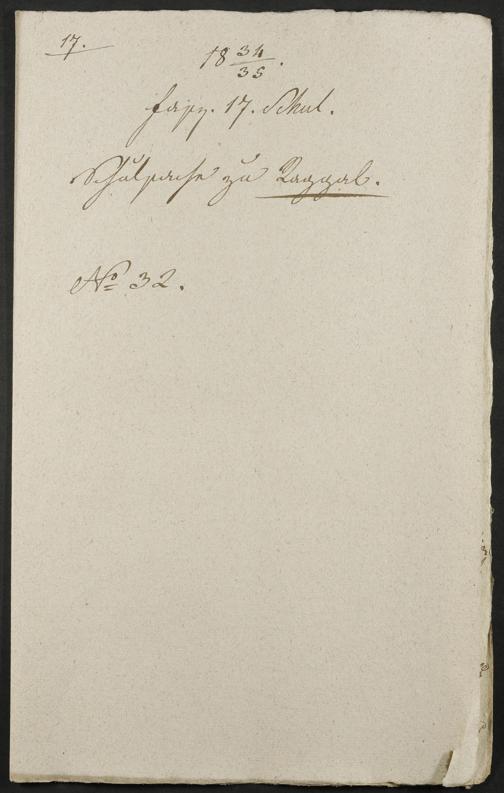 17.
18 34/35.
Fasz. 17. Schul.
Schulsache zu Raggal.
No 32.